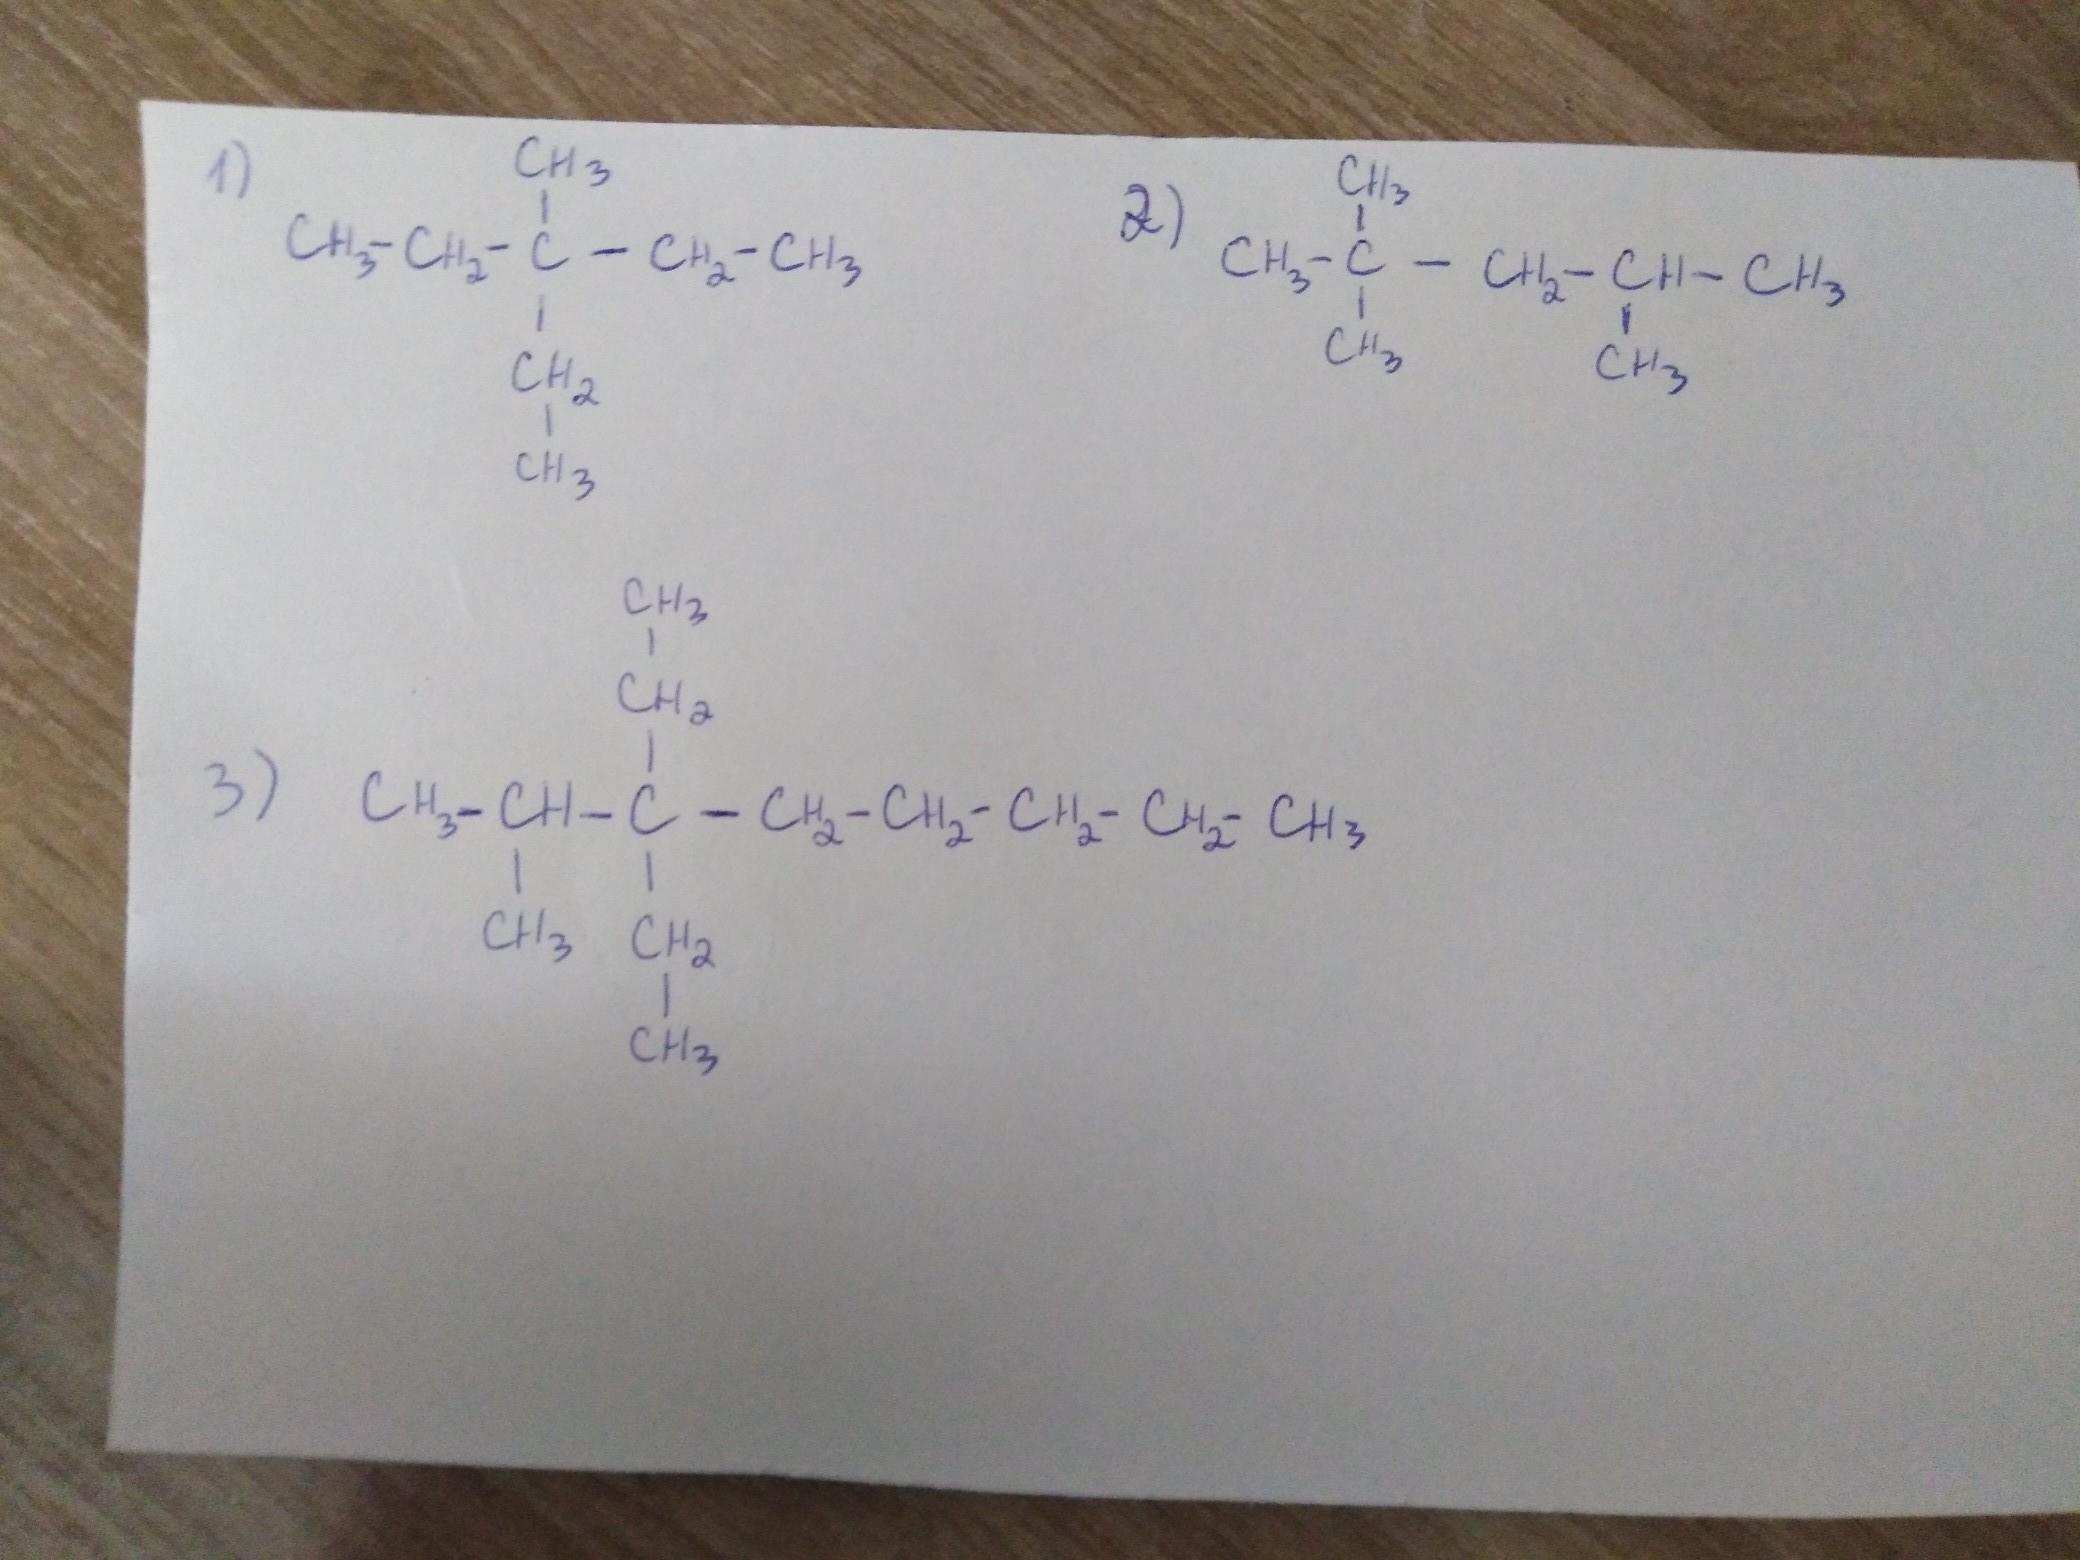 1)
CH3
CH3-CH2-C-CH2-CH3
CH2
CH3
2)
CH3
CH3-C-CH2-CH-CH3
CH3 CH3
3)
CH3
CH2
CH3-CH-C-CH2-CH2-CH2-CH2-CH3
CH3 CH2
CH3